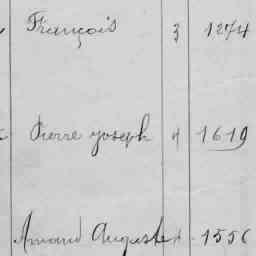 François 3 1274
Pierre Joseph 4 1619
Amand Auguste 1556